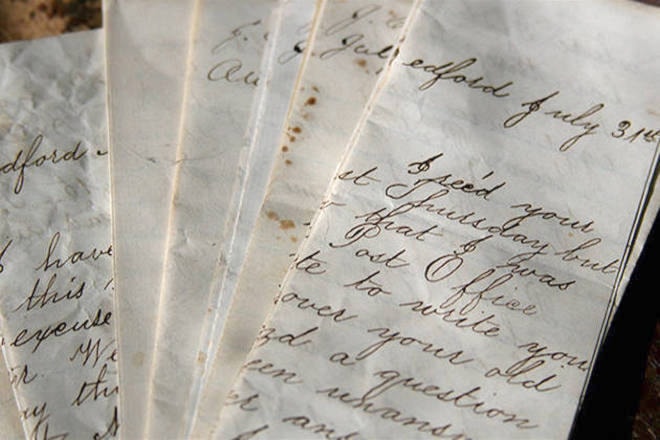 edford July 31st
I rec'd your
st Thursday but
that I was
Post Office
te to write you
over your old
d a question
een unans
er an
J. July
Au
dford
I have
this
excuse
r. We
y th